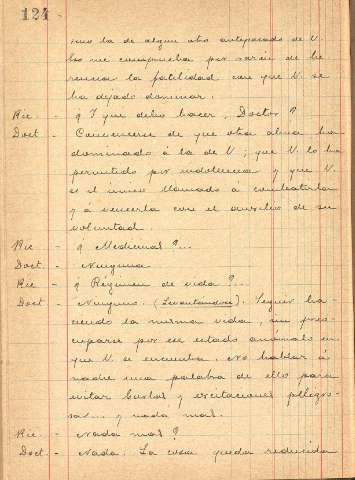 124
sino la de algun otro antepasado de V.
Eso me comprueba, por razon de he
rencia la fatilidad con que V. se
ha dejado dominar.
Ric — ¿ Y que debo hacer, Doctor ?
Doct — Convencerse de que otra alma ha
dominado á la de V; que V. lo ha
permitido por indolencia y que V.
es el único llamado á combatirla
y á vencerla con el auxilio de su
voluntad.
Ric — ¿ Medicinas ?...
Doct. — Ninguna
Ric — ¿ Régimen de vida ?...
Doct — Ninguno. (Levantandose). Seguir ha-
ciendo la misma vida, sin preo-
cuparse por ese estado anómalo en
que V. se encuentra. No hablar á
nadie una palabra de ello para
evitar burlas y excitaciones peligro-
sas... y nada mas.
Ric. — Nada mas ?
Doct — Nada. La cosa queda reducida